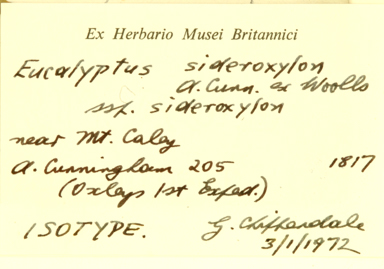 Ex Herbario Musei Britannici
Eucalyptus sideroxylon
A. Cunn. ex Woolls
ssp. sideroxylon
near Mt. Caley
A. Cunningham 205 1817
(Oxleys 1st Exped.)
ISOTYPE. G. Chippendale
3/1/1972